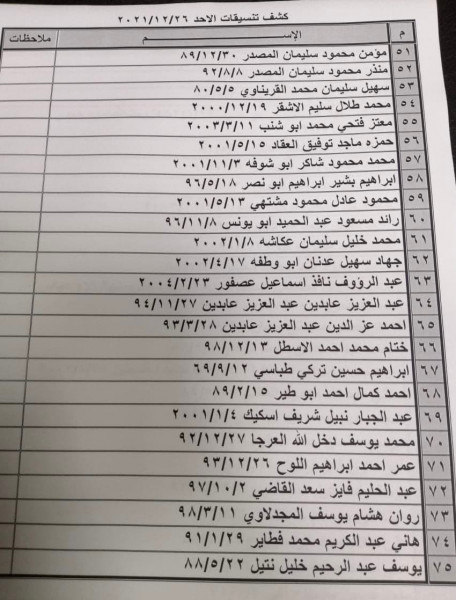 كشف تنسيقات الاحد ٢٠٢١/١٢/٢٦
م الإســـم ملاحظات
٥١ مؤمن محمود سليمان المصدر ٨٩/١٢/٣٠
٥٢ منذر محمود سليمان المصدر ٩٢/٨/٨
٥٣ سهيل سليمان محمد القريناوي ٨٠/٥/٥
٥٤ محمد طلال سليم الاشقر ٢٠٠٠/١٢/١٩
٥٥ معتز فتحي محمد ابو شنب ٢٠٠٣/٣/١١
٥٦ حمزه ماجد توفيق العقاد ٢٠٠١/٥/١٥
٥٧ محمد محمود شاكر ابو شوفه ٢٠٠١/١١/٣
٥٨ ابراهيم بشير ابراهيم ابو نصر ٩٦/٥/١٨
٥٩ محمود عادل محمود مشتهي ٢٠٠١/٥/١٣
٦٠ رائد مسعود عبد الحميد ابو يونس ٩٦/١١/٨
٦١ محمد خليل سليمان عكاشه ٢٠٠٢/١/٨
٦٢ جهاد سهيل عدنان ابو وطفه ٢٠٠٢/٤/١٧
٦٣ عبد الرؤوف نافذ اسماعيل عصفور ٢٠٠٤/٢/٢٣
٦٤ عبد العزيز عابدين عبد العزيز عابدين ٩٤/١١/٢٧
٦٥ احمد عز الدين عبد العزيز عابدين ٩٣/٣/٢٨
٦٦ ختام محمد احمد الاسطل ٩٨/١٢/١٣
٦٧ ابراهيم حسين تركي طباسي ٦٩/٩/١٢
٦٨ احمد كمال احمد ابو طير ٨٩/٢/١٥
٦٩ عبد الجبار نبيل شريف اسكيك ٢٠٠١/١/٤
٧٠ محمد يوسف دخل الله العرجا ٩٢/١٢/٢٧
٧١ عمر احمد ابراهيم اللوح ٩٣/١٢/٢٦
٧٢ عبد الحليم فايز سعد القاضي ٩٧/١٠/٢
٧٣ روان هشام يوسف المجدلاوي ٩٨/٣/١١
٧٤ هاني عبد الكريم محمد فطاير ٩١/١/٢٩
٧٥ يوسف عبد الرحيم خليل نتيل ٨٨/٥/٢٢